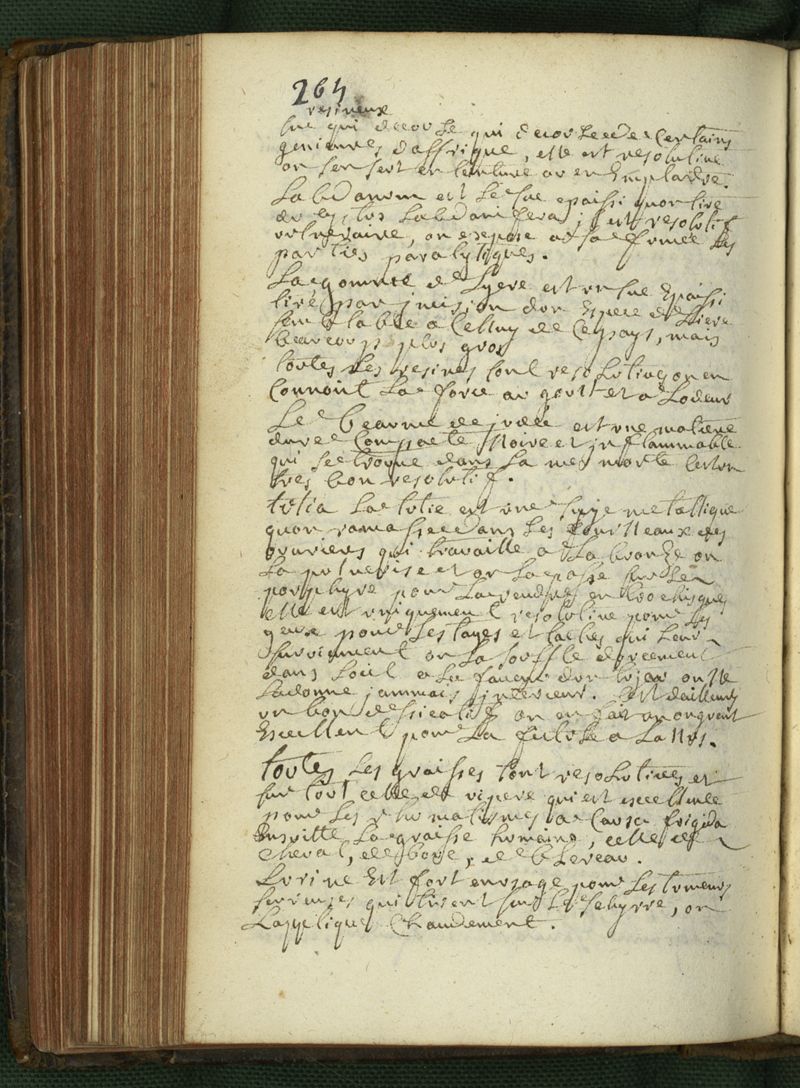 264
resineux
suc qui decoule qui decoule de certains
genievres d'affrique, elle est resolutive
on sen sert en teinture ou en Emplatre.
Labdanum est le suc epaissi quon tire
du cistus Labdanifera; est resolutif
vulneraire, on expose a sa fumée les
parties paralytiques.
La gomme de Lyere est un suc Epaissi
tiré par jncision d'un Espece de Liere
semblable a Celluy de Ce pays, mais
beaucoup plus gros
toutes les resines sont resolutives on en
Connoit La force au gout et a Lodeur
Le beaume de judée est une matiere
dure Compacte Noire et jnflammable
qui se trouve dans La mer morte Cest un
tres bon resolutif.
tutia La tutie est une suye metallique
quon ramasse dans Les fourneaux des
ouvriers qui travaille a La bronze on
La pulverise et on La passe sur Le
porphyre pour La rendre en trochisques
elle est uniquement resolutive pour les
yeux pour Les tayes et taches qui leur
surviennent on La souffle doucement
dans Loeil a La faveur d'un tuyau on ne
La donne jammais jnterieur. Cest dailleurs
un bon dessicatif on en fait un onguent
Excellent pour La fistule a Lanus.
toutes Les graisses sont resolutives et
sur tout celle de vipere qui est excellente
pour Les rhumatismes a Causa frigida
Ensuitte La graisse humaine, celle de
Cheval, de boeuf, de bLereau.
Lurine Est fort en usage pour Les tumeurs
sereuses qui tirent sur Le schyrre, on
Lapplique Chaudement.